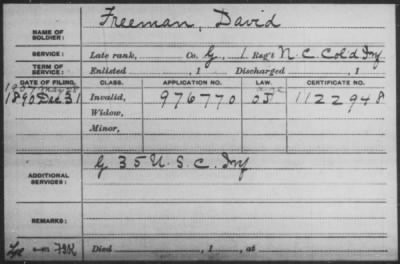 NAME OF SOLDIER: Freeman, David
SERVICE: Late rank, Co. G, 1 Reg't N. C. Cold Inf
TERM OF SERVICE: Enlisted , 1 Discharged , 1
DATE OF FILING. CLASS. APPLICATION NO. LAW. CERTIFICATE NO.
1890 Dec 31 Invalid, 976770 1122948
Widow,
Minor,
ADDITIONAL SERVICES: G 35 U. S. C. Inf.
REMARKS:
Died , 1 , at